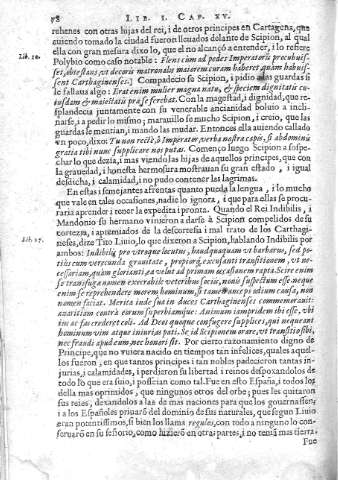 58 LIB. I. CAP. XV.
rehenes con otras hijas del rei, i de otros principes en Cartagena, que
auiendo tomado la ciudad fueron lleuados delante de Scipion, al qual
ella con gran mesura dixo lo, que el no alcançó a entender, i lo refiere
Lib. 10.
Polybio como caso notable: Flens cùm ad pedes Imperatoris procubuis-
set, obtestans, vt decoris matronalis maiorem curam haberet, quàm habuis-
sent Carthaginenses. Compadecio se Scipion, i pidio a las guardas si
le faltaua algo: Erat enim mulier magna natu, & speciem dignitatis cu-
iusdam & maiestatis præ se ferebat. Con la magestad, i dignidad, que re-
splandecia juntamente con su venerable ancianidad boluio a incli-
narse, i a pedir lo mismo; marauillo se mucho Scipion, i creio, que las
guardas se mentian, i mando las mudar. Entonces ella auiendo callado
vn poco, dixo: Tu non rectè, ò Imperator, verba nostra capis, si abdominis
gratia tibi nunc supplicare nos putas. Començo luego Scipion a sospe-
char lo que dezia, i mas viendo las hijas de aquellos principes, que con
la grauedad, i honesta hermosura mostrauan su gran estado, i igual
desdicha, i calamidad, no pudo contener las lagrimas.
En estas i semejantes afrentas quanto pueda la lengua, i lo mucho
que vale en tales occasiones, nadie lo ignora, i que para ellas se procu-
raria aprender i tener la expedita i pronta. Quando el Rei Indibilis, i
Mandonio su hermano vinieron a darse à Scipion compelidos de su
corteza, i apremiados de la descortesia i mal trato de los Carthagi-
Lib. 27.
neses, dize Tito Liuio, lo que dixeron a Scipion, hablando Indibilis por
ambos: Indibilis pro vtroque locutus, haudquaquam vt barbarus, sed po-
tiùs cum verecunda grauitate, propiorq; excusanti transitionem, vt ne-
cessariam, quàm glorianti, ea velut ad primam occasionem rapta. Scire enim
se transfugæ nomen execrabile veteribus socijs, nouis suspectum esse: neque
enim se reprehendere morem hominum, si tamen anceps odium causa, non
nomen faciat. Merita inde sua in duces Carthaginenses commemorauit:
auaritiam contrà eorum superbiamque: Animum
Por cierto razonamiento digno de
Principe, que no vuiera nacido en tiempos tan infelices, quales aque-
los fueron, en que tantos principes i tan nobles padecieron tantas in-
jurias, i calamidades, i perdieron su libertad i reinos despojandolos de
todo lo que era suio, i posseian como tal. Fue en esto España, i todos los
della mas oprimidos, que ningunos otros del orbe; pues les quitaron
sus reies, dexandolos a las de mas naciones para que los gouernassen,
i a los Españoles priuarō del dominio de sus naturales, que segun Liuio
eran potentissimos, si bien los llama regulos, con todo a ninguno lo con-
seruarō en su señorio, como hizierō en otras partes, i no tenia mas tierra.
Fue